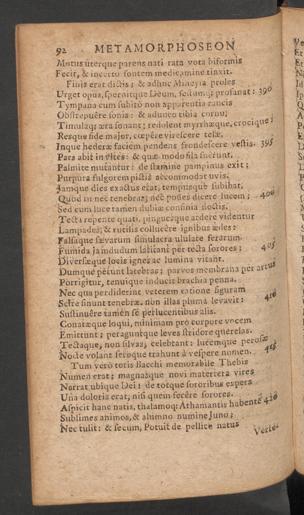 92 METAMORPHOSEON
Motus uterque parens nati rata vota biformis
Fecit, & incerto fontem medicamine tinxit.
Finis erat dictis: & adhuc Mineyia proles
Urget opus, spernitque Deum, festumq; profanat: 390
Tympana cum subitò non apparentia raucis
Obstrepuêre sonis: & adunco tibia cornu;
Tinnulaq; æra sonant: redolent myrrhæque, crocique;
Resque fide major, cœpêre virescere telæ,
Inque hederæ faciem pendens frondescere vestis. 395
Pars abit in vites: & quæ modò fila fuerunt,
Palmite mutantur: de stamine pampinus exit;
Purpura fulgorem pictis accommodat uvis.
Jamque dies exactus erat, tempusque subibat,
Quod tu nec tenebras, nec posses dicere lucem; 400
Sed cum luce tamen dubiæ confinia noctis,
Tecta repente quati, pinguesque ardere videntur
Lampades, & rutilis collucêre ignibus ædes:
Falsaque sævarum simulacra ululare ferarum.
Fumida jamdudum latitant per tecta sorores; 405
Diversæque locis ignes ac lumina vitant.
Dumque petunt latebras; parvos membrana per artus
Porrigitur, tenuique inducit brachia penna.
Nec qua perdiderint veterem ratione figuram
Scire sinunt tenebræ. non illas pluma levavit: 410
Sustinuêre tamen se perlucentibus alis.
Conatæque loqui, minimam pro corpore vocem
Emittunt; peraguntque leves stridore querelas.
Tectaque, non silvas, celebrant: lucemque perosæ
Nocte volant seroque trahunt à vespere nomen. 415
Tum verò totis Bacchi memorabile Thebis
Numen erat; magnasque novi matertera vires
Narrat ubique Dei: de totque sororibus expers
Una doloris erat, nisi quem fecêre sorores.
Aspicit hanc natis, thalamoq; Athamantis habentem 420
Sublimes animos, & alumno numine Juno;
Nec tulit: & secum, Potuit de pellice natus
Verte-